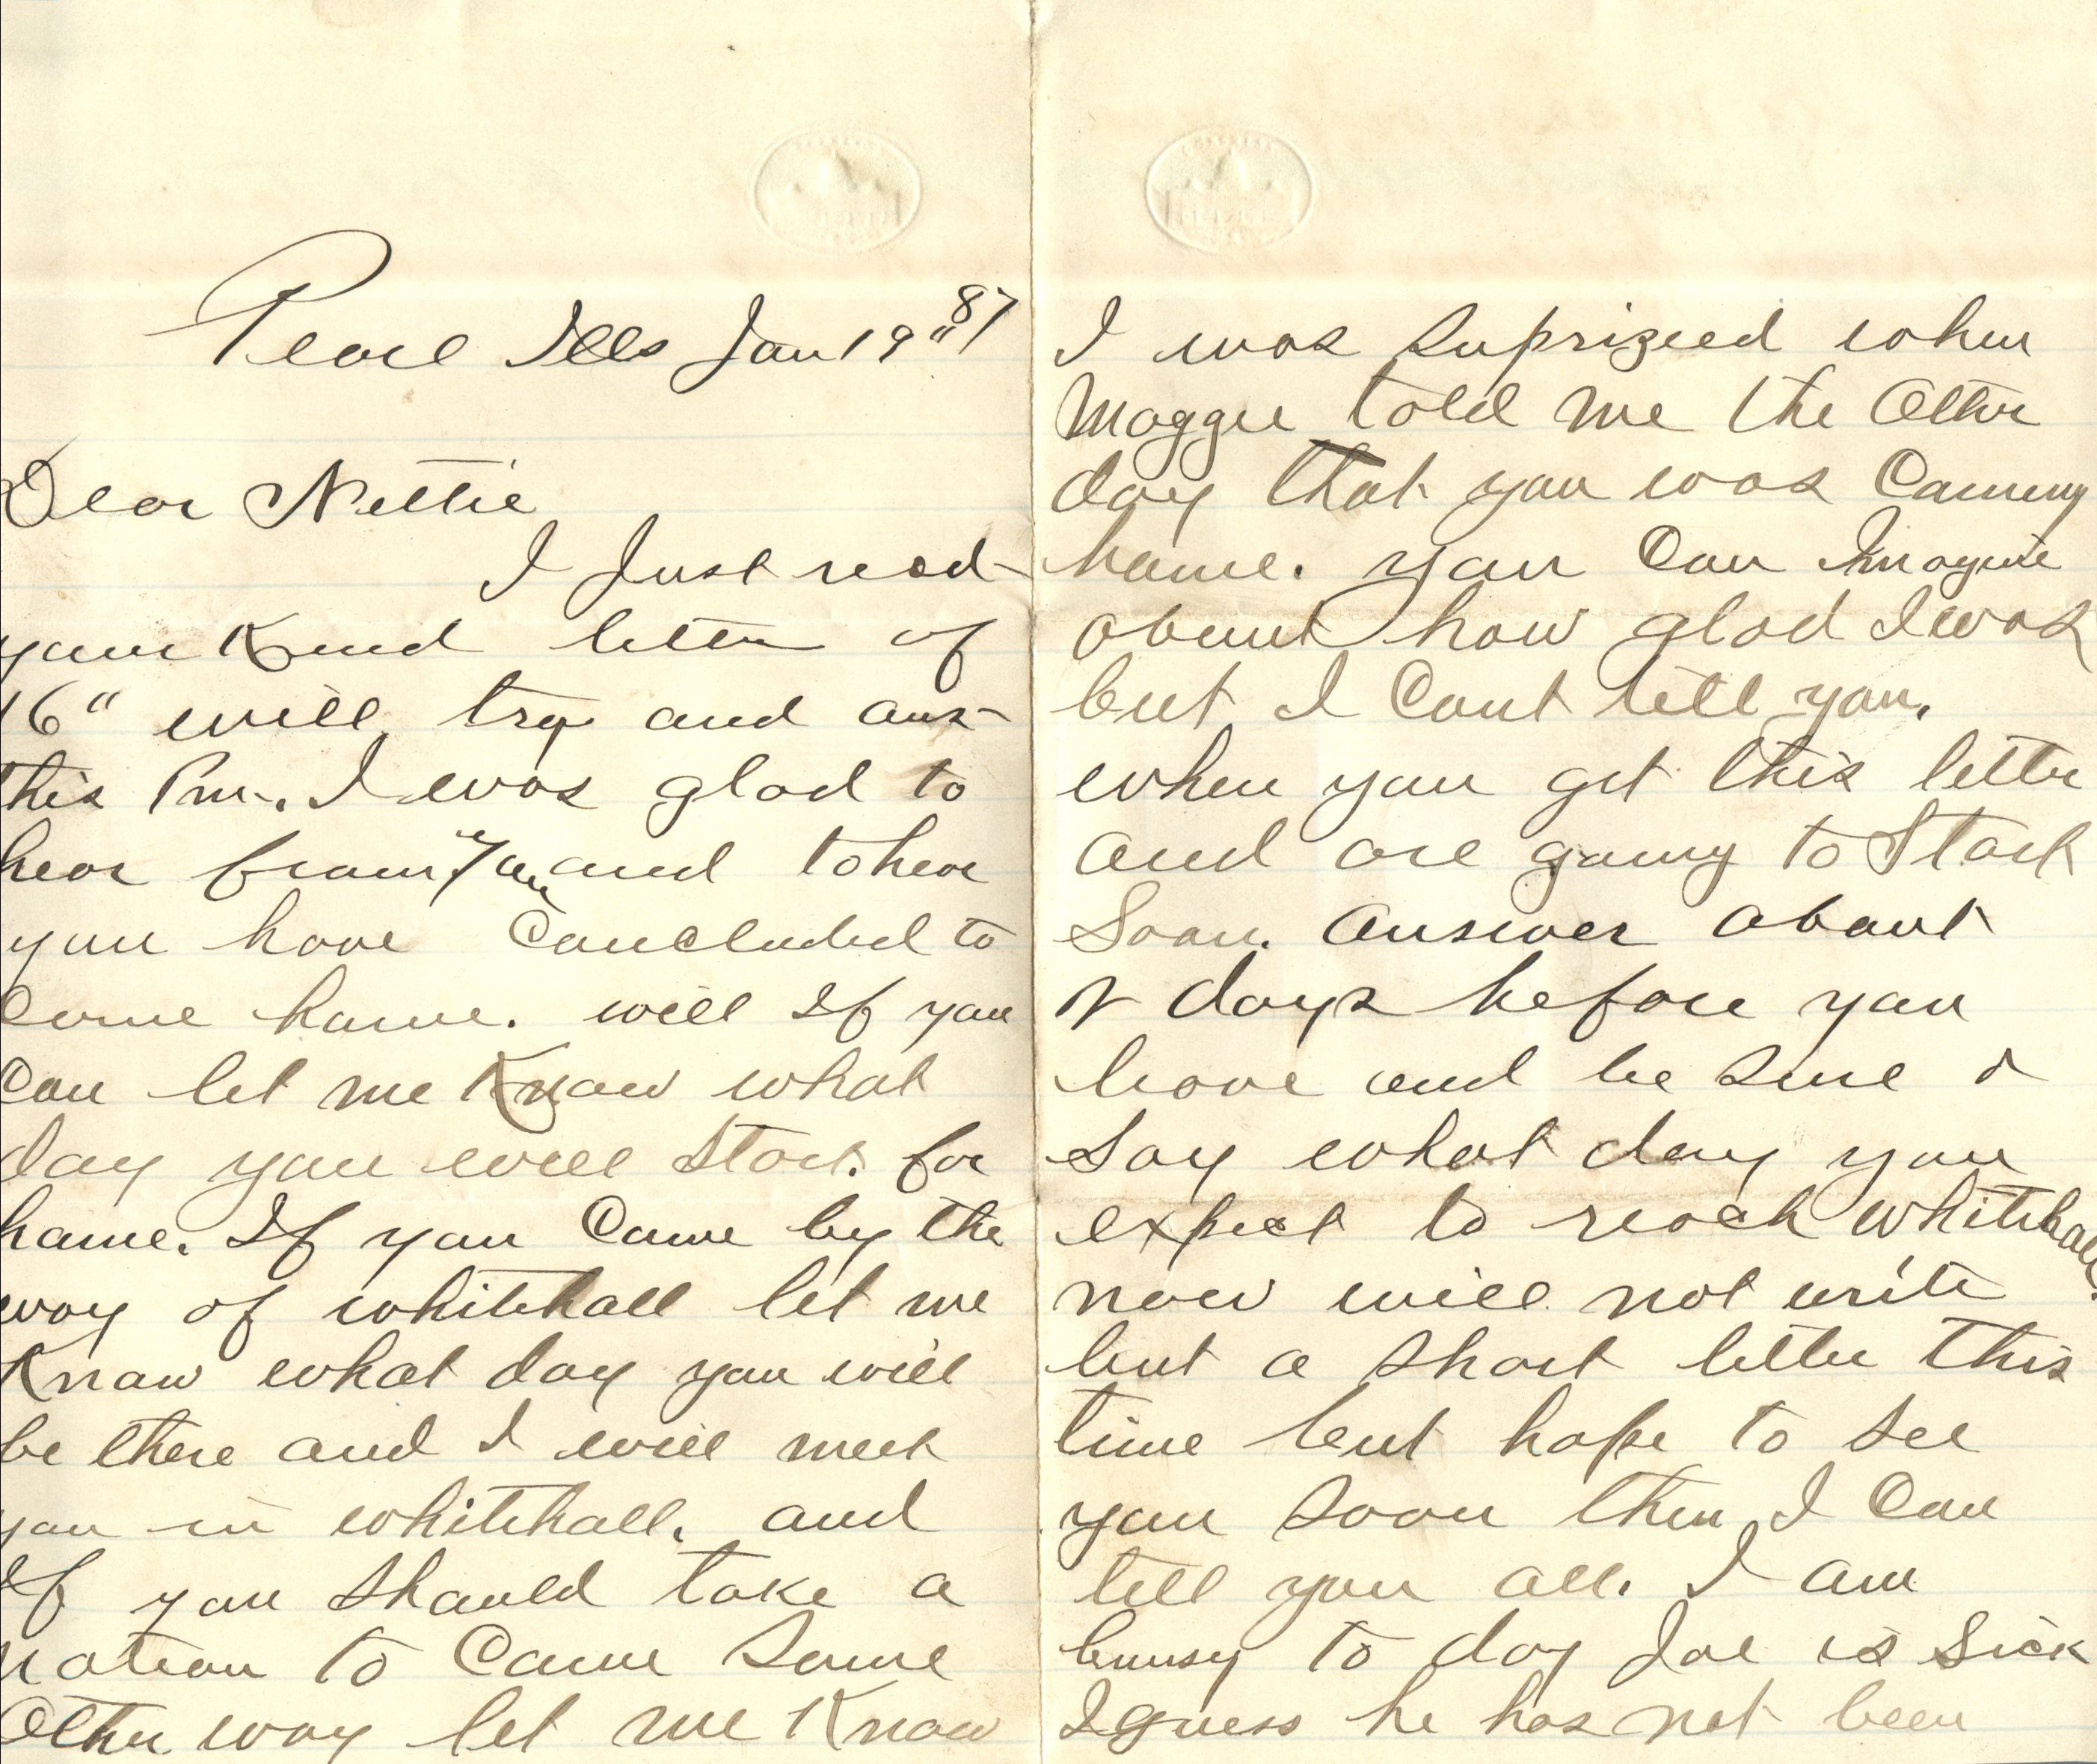 Pearl Ills Jan 19" 87
Dear Nettie
I Just recd
your Kind letter of
16" will try and ans
this Pm. I was glad to
hear from you and to hear
you have Concluded to
Come home. will If you
Can let me Know what
day you will Start for
home. If you Come by the
way of whitehall let me
Know what day you will
be there and I will meet
you in whitehall. and
If you should take a
notion to Come Some
Other way let me Know
I was Suprizeed when
Maggie told me the Other
day that you was Coming
home. you Can Imagine
about how glad I was
but I Cant tell you.
when you get this letter
and are going to Start
Soon. Answer about
2 days before you
leave and be Sure &
Say what day you
expect to reach whitehall.
now will not write
but a short letter this
time but hope to see
you soon then I Can
tell you all. I am
buusy to day Joe is Sick
I guess he has not been